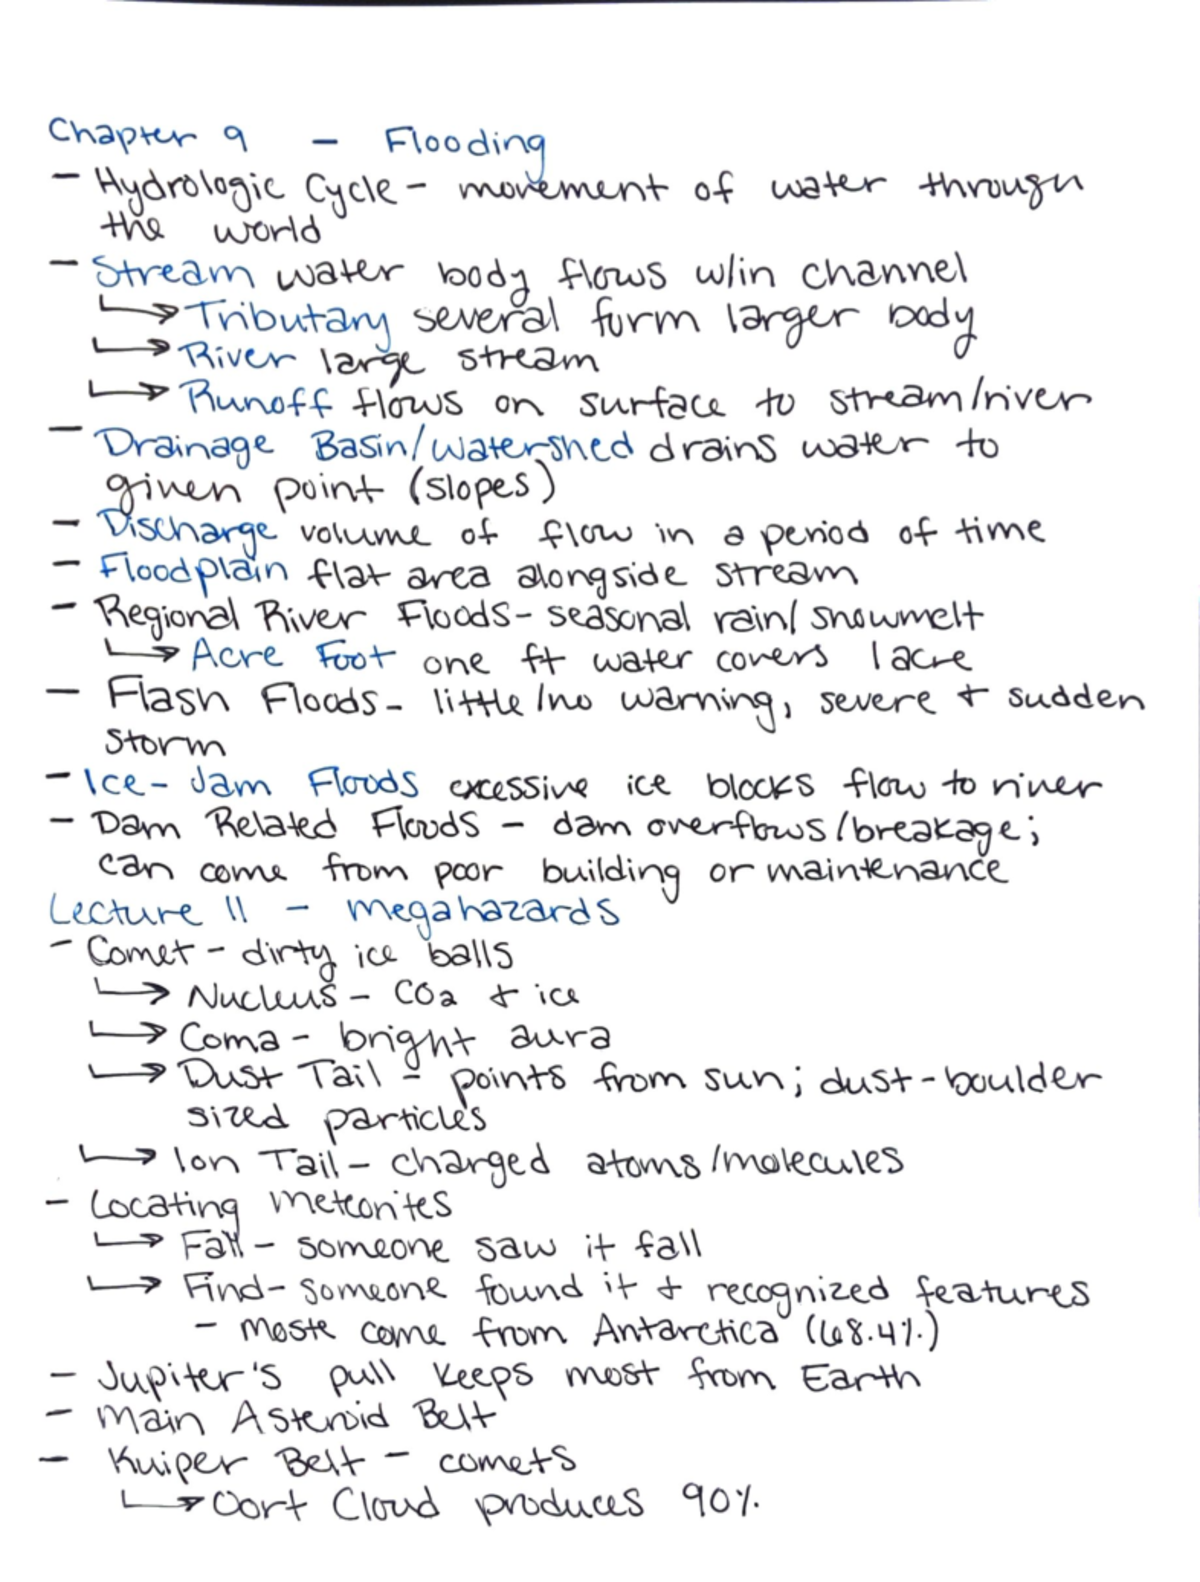 Chapter 9 - Flooding
- Hydrologic Cycle - movement of water through
the world
- Stream water body flows w/in channel
↳ Tributary several form larger body
↳ River large stream
↳ Runoff flows on surface to stream/river
- Drainage Basin/Watershed drains water to
given point (slopes)
- Discharge volume of flow in a period of time
- Floodplain flat area alongside stream
- Regional River Floods - seasonal rain/snowmelt
↳ Acre Foot one ft water covers 1 acre
- Flash Floods - little/no warning, severe + sudden
storm
- Ice-Jam Floods excessive ice blocks flow to river
- Dam Related Floods - dam overflows/breakage;
can come from poor building or maintenance
Lecture 11 - Megahazards
- Comet - dirty ice balls
↳ Nucleus - CO2 + ice
↳ Coma - bright aura
↳ Dust Tail - points from sun; dust-boulder
sized particles
↳ Ion Tail - charged atoms/molecules
- Locating Meteorites
↳ Fall - someone saw it fall
↳ Find - someone found it + recognized features
- Moste come from Antarctica (68.4%)
- Jupiter's pull keeps most from Earth
- Main Asteroid Belt
- Kuiper Belt - comets
↳ Oort Cloud produces 90%